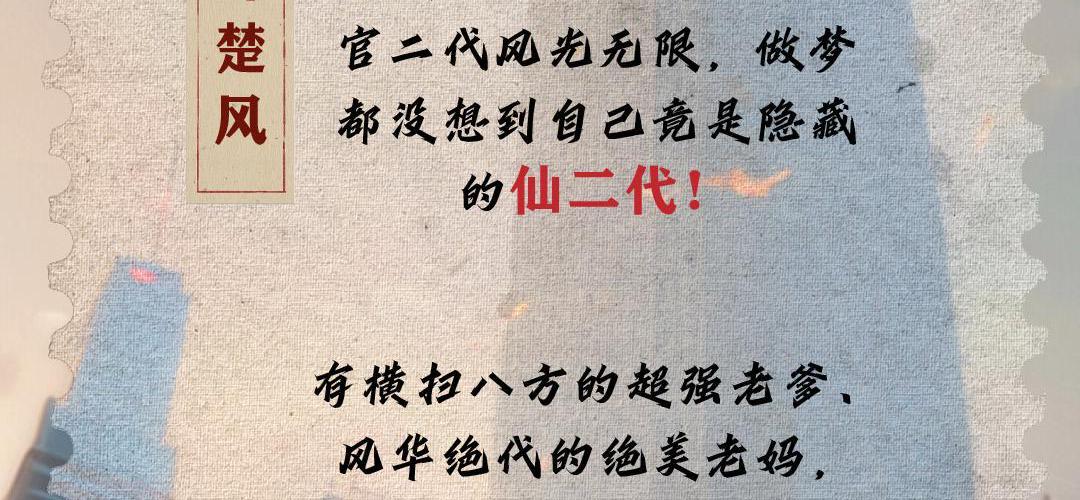 楚风
官二代风光无限，做梦
都没想到自己竟是隐藏
的仙二代！
有横扫八方的超强老爹、
风华绝代的绝美老妈，